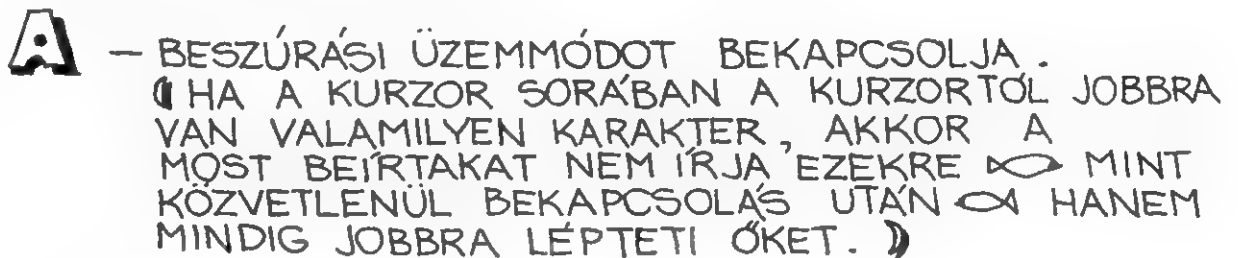 A – BESZÚRÁSI ÜZEMMÓDOT BEKAPCSOLJA.
(HA A KURZOR SORÁBAN A KURZORTÓL JOBBRA
VAN VALAMILYEN KARAKTER, AKKOR A
MOST BEÍRTAKAT NEM ÍRJA EZEKRE – MINT
KÖZVETLENÜL BEKAPCSOLÁS UTÁN – HANEM
MINDIG JOBBRA LÉPTETI ŐKET.)